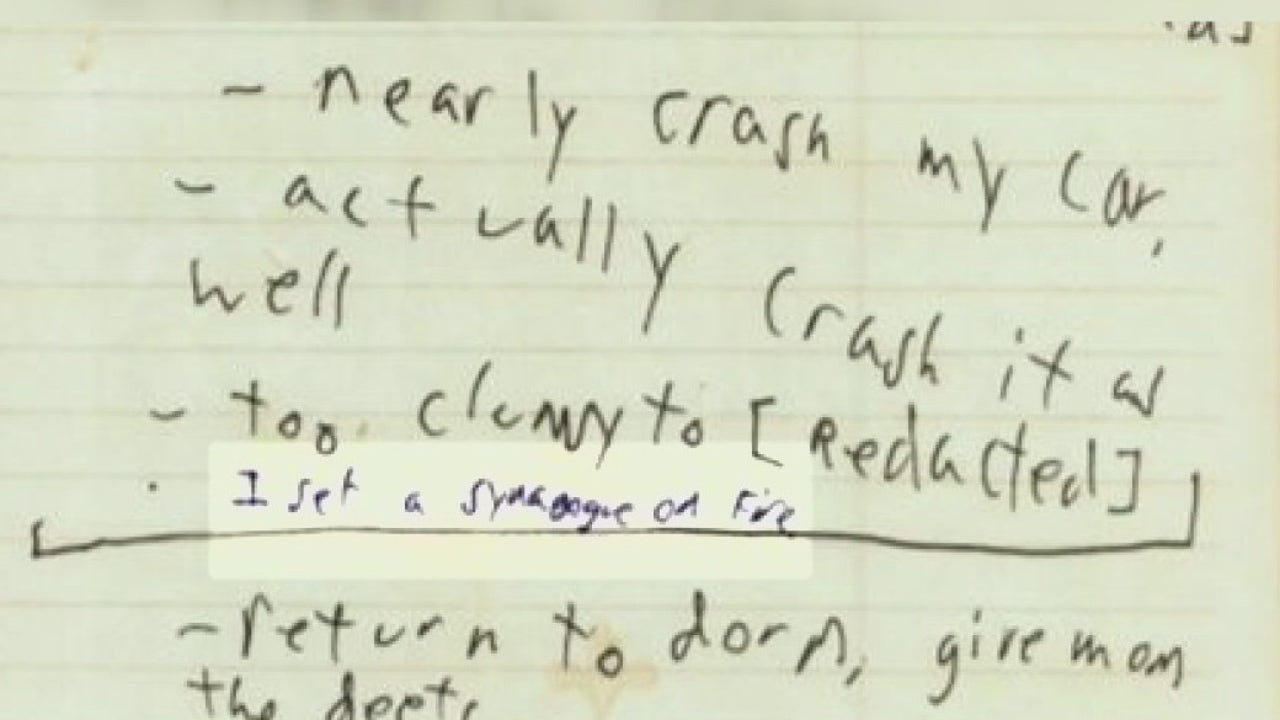 - nearly crash my car,
- actually crash it as
well
- too clumsy to [Redacted]
I set a synagogue on Fire
- return to dorm, give mom
the deets